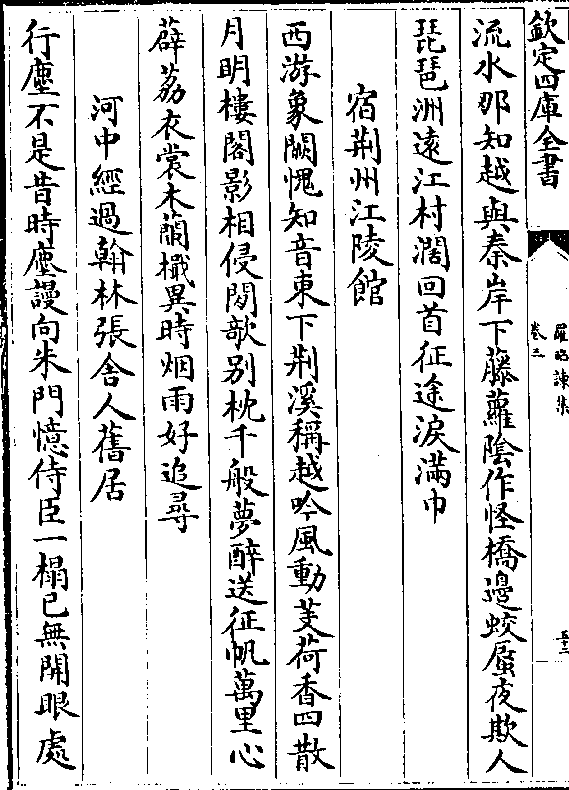 欽定四庫全書
羅昭諫集
卷三
流水那知越與秦岸下藤蘿陰作怪橋邊蛟蜃夜欺人
琵琶洲遠江村濶回首征途淚滿巾
宿荆州江陵館
西游象闕愧知音東下荆溪稱越吟風動芰荷香四散
月明樓閣影相侵閒欹别枕千般夢醉送征帆萬里心
薜荔衣裳木蘭檝異時烟雨好追尋
河中經過翰林張舍人舊居
行塵不是昔時塵謾向朱門憶侍臣一榻已無開眼處